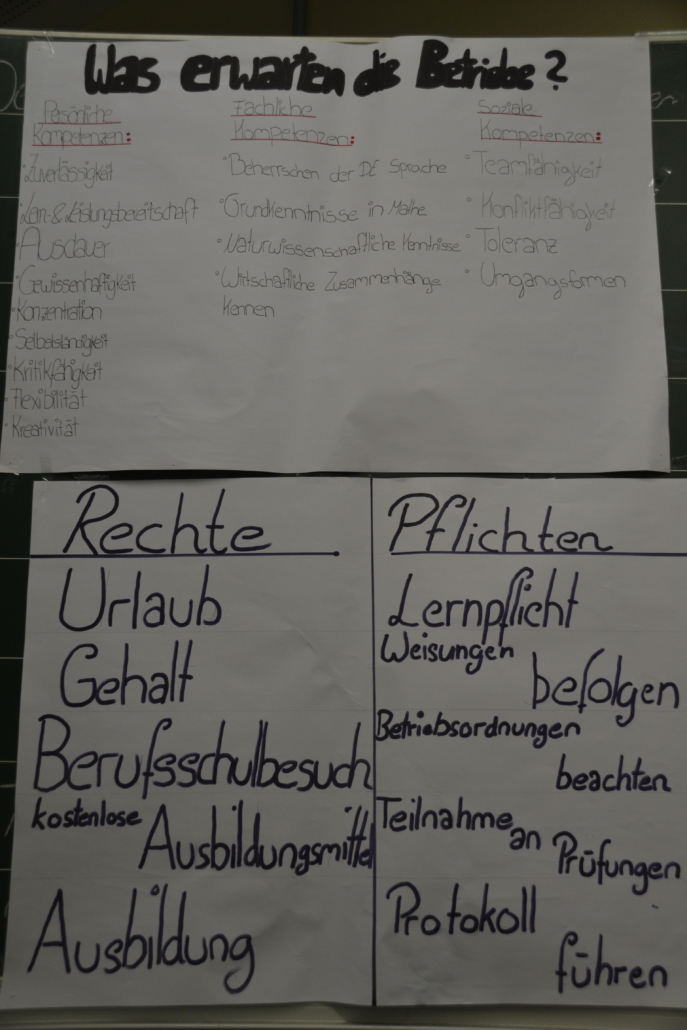 Was erwarten die Betriebe?
Persönliche
Kompetenzen:
· Zuverlässigkeit
· Lern- & Leistungsbereitschaft
· Ausdauer
· Gewissenhaftigkeit
· Konzentration
· Selbstständigkeit
· Kritikfähigkeit
· Flexibilität
· Kreativität
Fachliche
Kompetenzen:
· Beherrschen der DE Sprache
· Grundkenntnisse in Mathe
· Naturwissenschaftliche Kenntnisse
· Wirtschaftliche Zusammenhänge
kennen
Soziale
Kompetenzen:
· Teamfähigkeit
· Konfliktfähigkeit
· Toleranz
· Umgangsformen
Rechte
Urlaub
Gehalt
Berufsschulbesuch
kostenlose Ausbildungsmittel
Ausbildung
Pflichten
Lernpflicht
Weisungen befolgen
Betriebsordnungen
beachten
Teilnahme an Prüfungen
Protokoll
führen